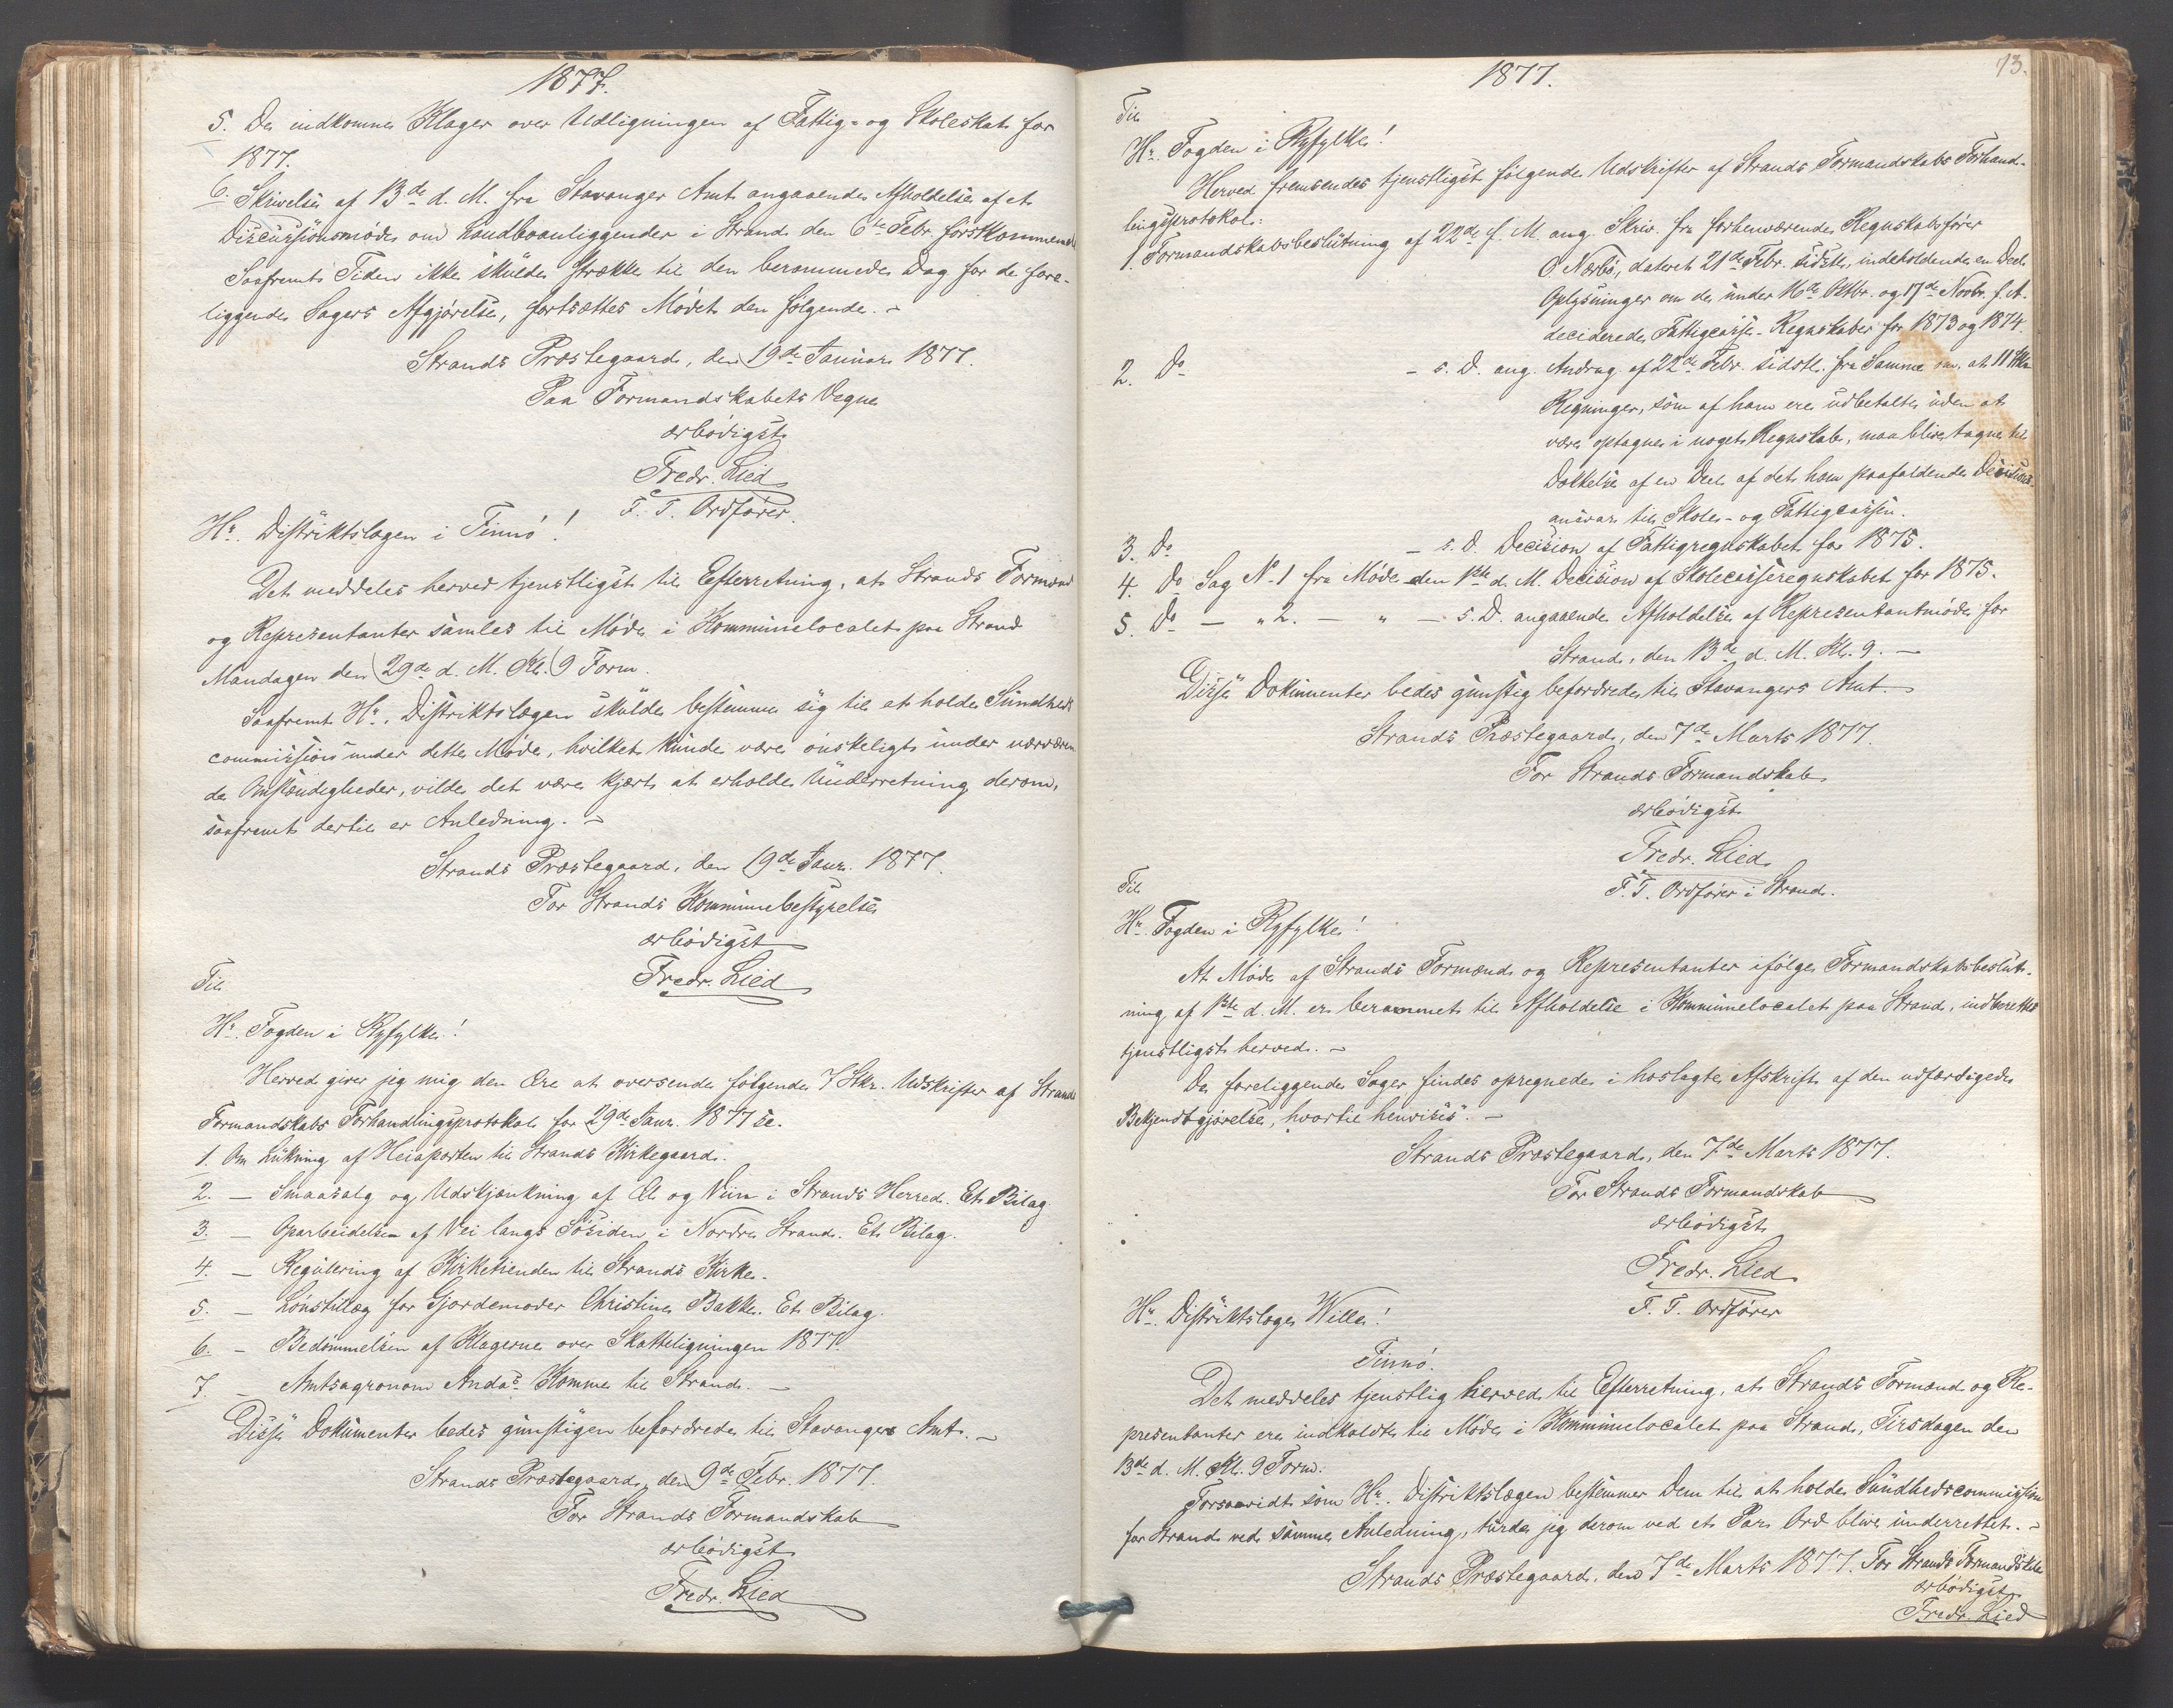 1877.
5. De indkomne Klager over Udligningen af Fattig- og Skoleskat for
1877.
6. Skrivelse af 13de d. M. fra Stavanger Amt angaaende Afholdelse af et
Discussionsmøde om Landboanliggender i Strand den 6te Febr. førstkommende
Saafremt Tiden ikke skulde strække til den berammede Dag for de fore-
liggende Sagers Afgjørelse, fortsættes Mødet den følgende. -
Strands Præstegaard, den 19de Januar 1877.
Paa Formandskabets Vegne
ærbødigst
Fredr. Lied
F. T. Ordfører.
Hr. Distriktslægen i Finnø!
Det meddeles herved tjenstligst til Efterretning, at Strands Formænd
og Repræsentanter samles til Møde i Kommunelocalet paa Strand
Mandagen den 29de d. M. Kl. 9 Form.
Saafremt Hr. Distriktslægen skulde bestemme sig til at holde Sundheds
commission under dette Møde, hvilket kunde være ønskeligt under nærværen
de Omstændigheder, vilde det være kjært at erholde Underretning derom,
saafremt dertil er Anledning. -
Strands Præstegaard, den 19de Janr. 1877.
For Strands Kommunebestyrelse
ærbødigst
Fredr. Lied
Til
Hr. Fogden i Ryfylke!
Herved giver jeg mig den Ære at oversende følgende 7 Stkr. Udskrifter af Strands
Formandskabs Forhandlingsprotokol for 29de Janr. 1877 :
1. Om Lukning af Heiaporten til Strands Kirkegaard.
2. — Smaasalg og Udskjænkning af Øl og Viin i Strands Herred. Et Bilag.
3. — Oparbeidelsen af Vei langs Søsiden i Nordre Strand. Et Bilag.
4. — Regulering af Kirketienden til Strands Kirke.
5. — Lønstillæg for Gjordemoder Christine Bakke. Et Bilag.
6. — Bedømmelsen af Klagerne over Skatteligningen 1877.
7. — Amtsagronom Andas Komme til Strand. —
Disse Dokumenter bedes gunstigen befordrede til Stavangers Amt. —
Strands Præstegaard, den 9de Febr. 1877.
For Strands Formandskab
ærbødigst
Fredr. Lied
1877.
73.
Til
Hr. Fogden i Ryfylke!
Herved fremsendes tjenstligst følgende Udskrifter af Strands Formandskabs Forhand-
lingsprotokol:
1. Formandskabsbeslutning af 22de f. M. ang. Skriv. fra forhenværende Regnskabsfører
O. Nærbø, dateret 21de Febr. sidstl., indeholdende en Deel
Oplysninger om de under 16de Oktbr. og 17de Novbr. f. A.
deciderede Fattigcasse-Regnskaber for 1873 og 1874.
2. Do — s. D. ang. Andrag. af 22de Febr. sidstl. fra Samme om, at 11 Stkr
Regninger, som af ham ere udbetalte uden at
være optagne i noget Regnskab, maa blive tagne til
Dækkelse af en Deel af det ham paafaldende Decisions-
ansvar til Skole- og Fattigcassen.
3. Do — s. D. Decision af Fattigregnskabet for 1875.
4. Do Sag N. 1 fra Møde den 1ste d. M. Decision af Skolecasseregnskabet for 1875.
5. Do — " 2. — " — s. D. angaaende Afholdelse af Repræsentantmøde for
Strand, den 13de d. M. Kl. 9. —
Disse Dokumenter bedes gunstig befordrede til Stavangers Amt.
Strands Præstegaard, den 7de Marts 1877.
For Strands Formandskab
ærbødigst
Fredr. Lied
F. T. Ordfører i Strand.
Til
Hr. Fogden i Ryfylke!
At Møde af Strands Formænd og Repræsentanter ifølge Formandskabsbeslut-
ning af 1ste d. M. er berammet til Afholdelse i Kommunelocalet paa Strand, indberettes
tjenstligst herved. -
De foreliggende Sager findes opregnede i hoslagte Afskrift af den udfærdigede
Bekjendtgjørelse, hvortil henvises. —
Strands Præstegaard, den 7de Marts 1877.
For Strands Formandskab
ærbødigst
Fredr. Lied
F. T. Ordfører
Hr. Distriktslæge Wille!
Finnø.
Det meddeles tjenstlig herved til Efterretning, at Strands Formænd og Re-
præsentanter ere indkaldte til Møde i Kommunelocalet paa Strand, Tirsdagen den
13de d. M. Kl. 9 Form.
Forsaavidt som Hr. Distriktslægen bestemmer Dem til at holde Sundhedscommission
for Strand ved samme Anledning, turde jeg derom ved et Par Ord blive underrettet. -
Strands Præstegaard, den 7de Marts 1877. For Strands Formandskab
ærbødigst
Fredr. Lied